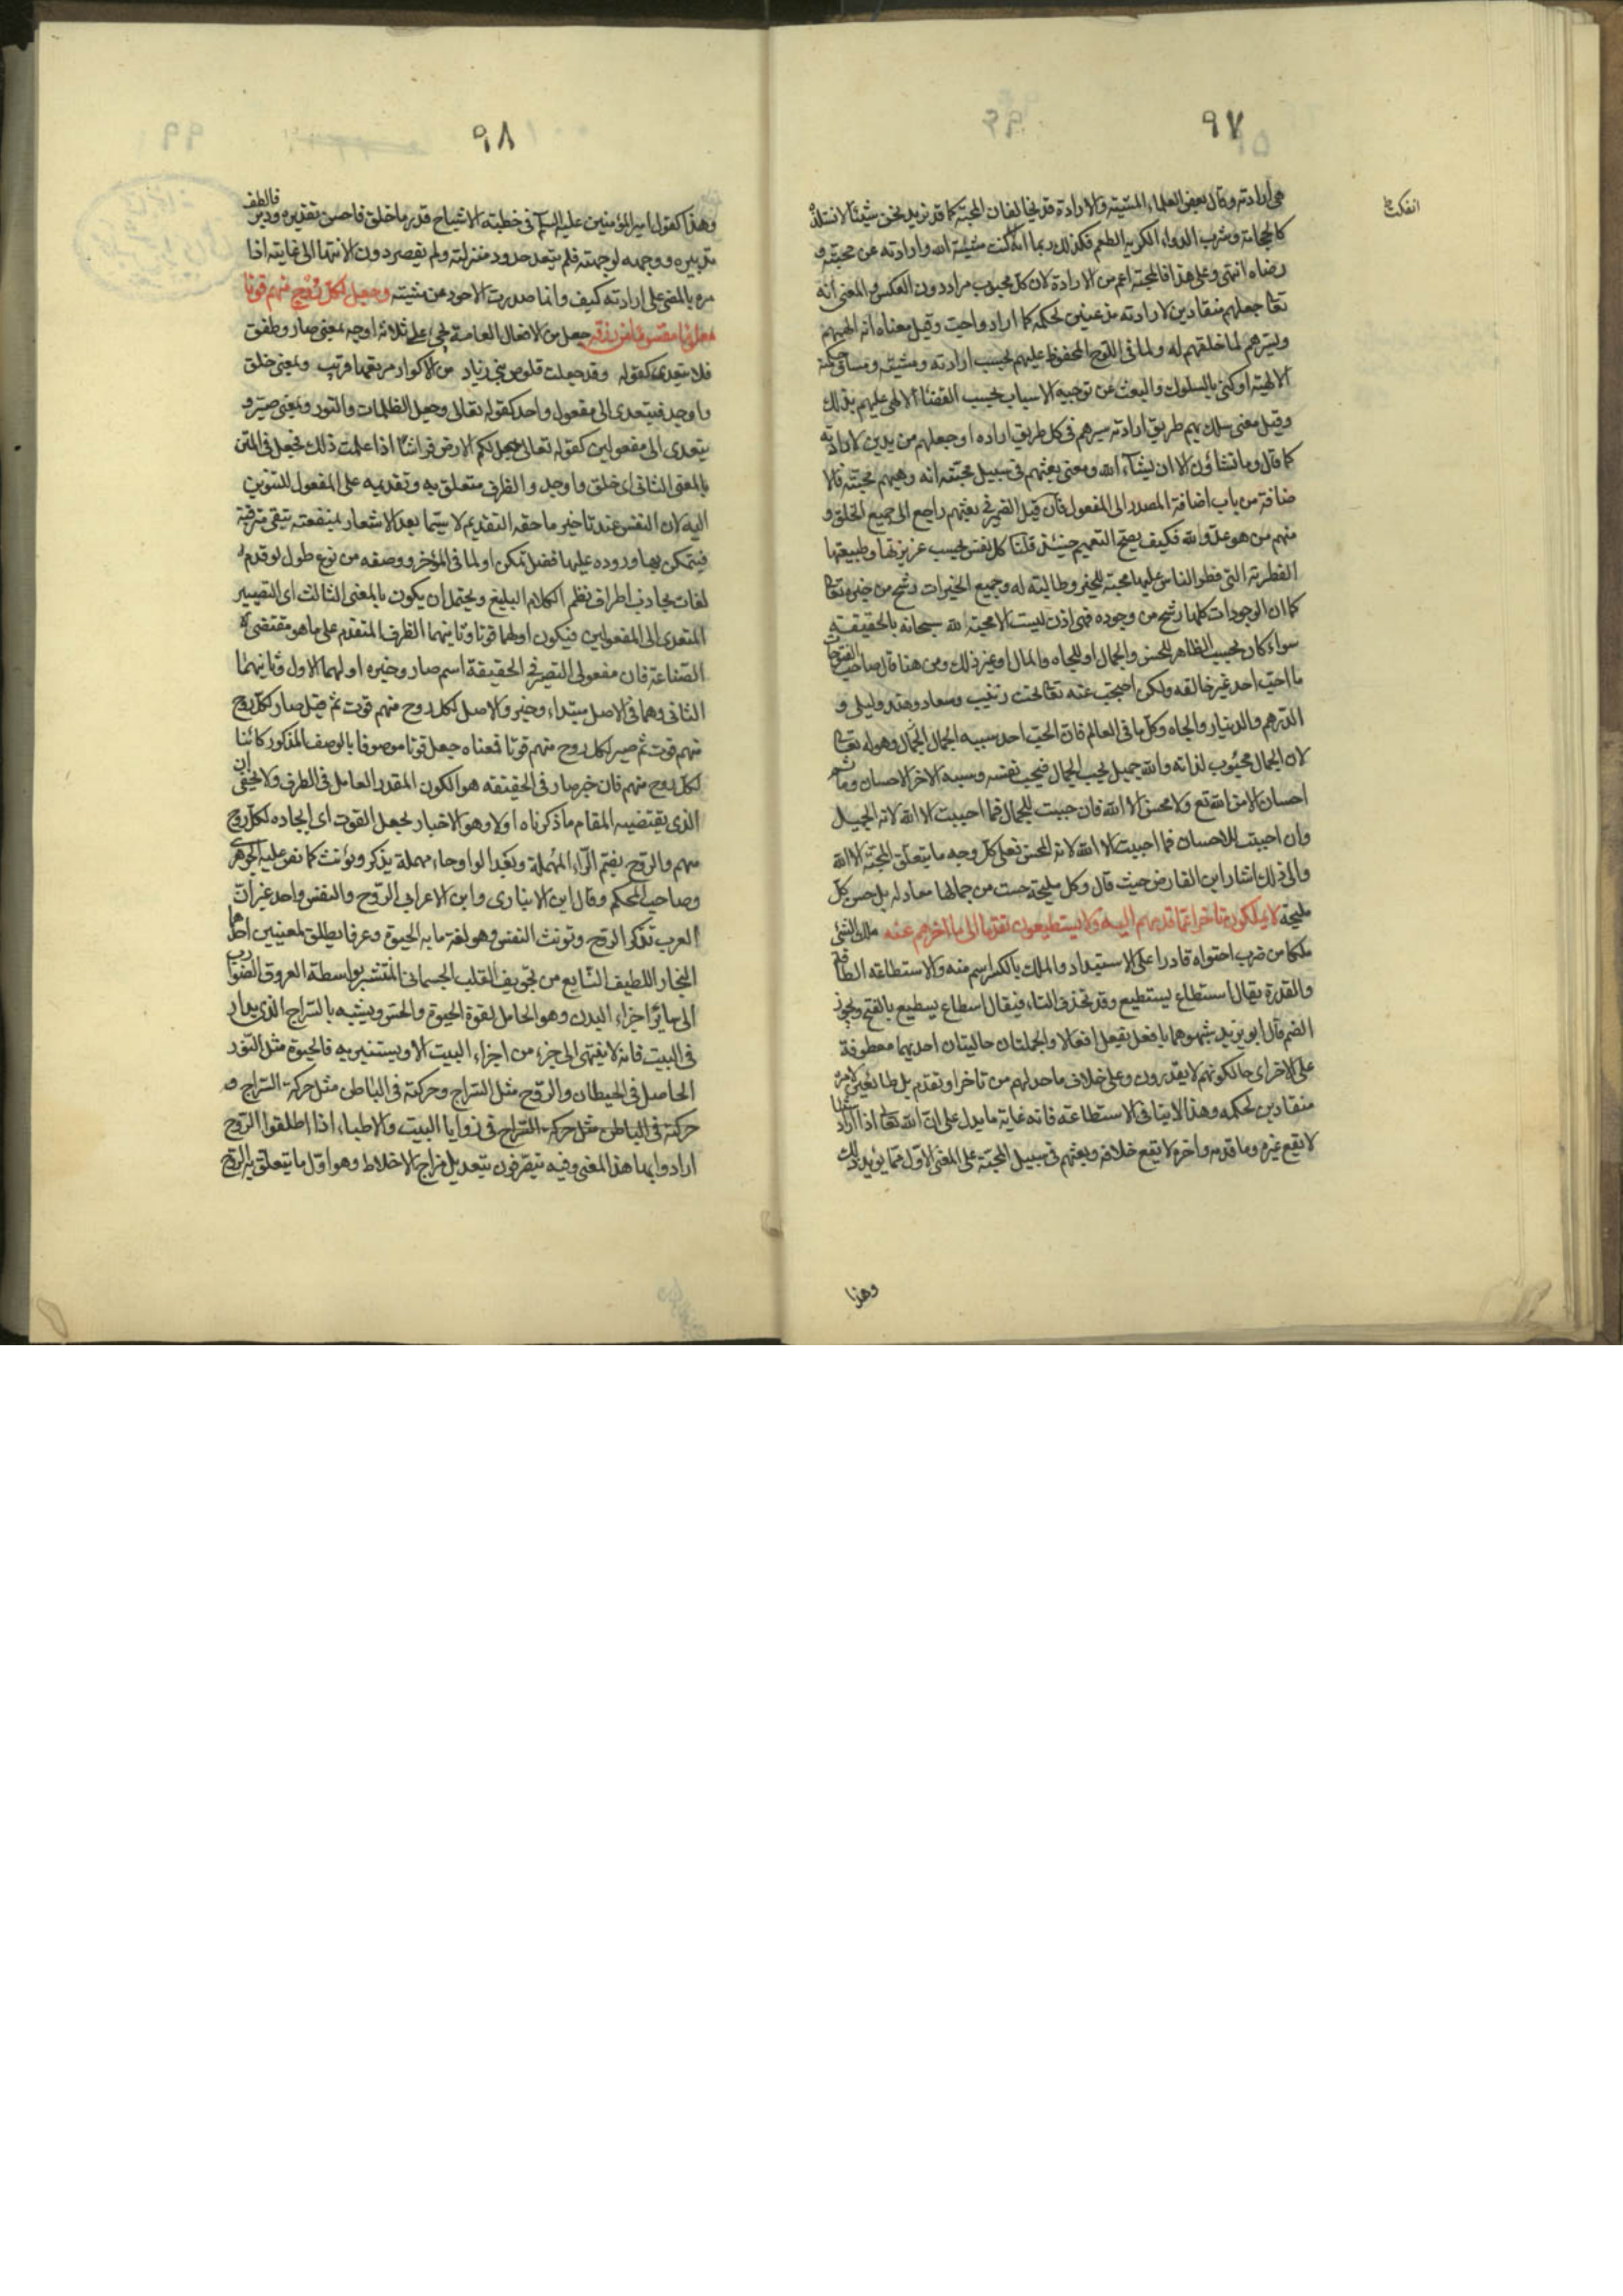 ٩٧
هي ارادته وقال بعض العلماء المشيته والارادة قد يخالفان المحبة كما قد نريد نحن شيئا لا نستلذه
كالحجامة وشرب الدواء الكريه الطعم فكذلك ربما انفكت مشيئة الله وارادته عن محبته و
انفكت
رضاه انتهى وعلى هذا فالمحبة اعم من الارادة لان كل محبوب مراد دون العكس والمعنى انه
تعا جعلهم منقادين لارادته مذعنين لحكمه كما اراد واحب وقيل معناه انه الهمهم
ويسرهم لما خلقهم له ولما في اللوح المحفوظ عليهم بحسب ارادته ومشيته ومساق حكمته
الالهية او كنى بالسلوك والبعث عن توجيه الاسباب بحسب القضاء الالهي عليهم بذلك
وقيل معنى سلك بهم طريق ارادته سيرهم في كل طريق اراده او جعلهم مريدين لارادته
كما قال وما تشاؤن الا ان يشآء الله ومعنى بعثهم في سبيل محبته انه وهبهم محبته فالا
ضافة من باب اضافة المصدر الى المفعول فان قيل الضمير في بعثهم راجع الى جميع الخلق و
منهم من هو عدو الله فكيف يصح التعميم حينئذ قلنا كل نفس بحسب غريزتها وطبيعتها
الفطرية التي فطر الناس عليها محبة للخير وطالبته له وجميع الخيرات رشح من خيره تعا
كما ان الوجودات كلها رشح من وجوده فهي اذن ليست الا محبة الله سبحانه بالحقيقة
سواء كان بحسب الظاهر للحسن والجمال او للجاه والمال او غير ذلك ومن هنا قال صاحب الفتوحات
ما احب احد غير خالقه ولكن احتجب عنه تعا تحت زينب وسعاد وهند وليلى و
الدرهم والدينار والجاه وكل ما في العالم فان الحب احد سببيه الجمال وهو له تعا
لان الجمال محبوب لذاته والله جميل يحب الجمال فيحب نفسه وسببه الاخر الاحسان وما ثم
احسان الا من الله تع ولا محسن الا الله فان احببت للجمال فما احببت الا الله لانه الجميل
وان احببت للاحسان فما احببت الا الله لانه المحسن فعلى كل وجه ما يتعلق المحبة الا الله
والى ذلك اشار ابن الفارض حيث قال وكل مليحة حسن من جمالها معار له بل حسن كل
مليحة لا يملكون تاخيرا عما قدمهم اليه ولا يستطيعون تقدما الى ما اخرهم عنه ملك الشئ
ملكا من ضرب احتواه قادرا على الاستبداد والملك بالكسر اسم منه والاستطاعة الطاقة
والقدرة يقال استطاع يستطيع وقد تحذف التاء فيقال اسطاع يسطيع بالفتح ويجوز
الضم قال ابو يزيد شبهوهما بافعل يفعل افعالا والجملتان حاليتان احديهما معطوفة
على الاخرى حالكونهم لا يقدرون وعلى خلاف ما حد لهم من تاخر او تقدم بل طائعين لامره
منقادين لحكمه وهذا لا ينافي الاستطاعة فانه غاية ما يدل على ان الله تعا اذا اراد شيئا
لا يقع غيره وما قدمه واخره لا يقع خلافه وبعثهم في سبيل المحبة على المعنى الاول مما يؤيد ذلك
وهذا
٩٨
وهذا كقول امير المؤمنين عليه السلم في خطبته الاشباح قدر ما خلق فاحسن تقديره ودبره فالطف
تدبيره ووجهه لوجهته فلم يتعد حدود منزلته ولم يقصر دون الانتهاء الى غايته اذا
مره بالمضي على ارادته كيف وانما صدرت الامور عن مشيته وجعل لكل روح منهم قوتا
معلوما مقسوما من رزقه جعل من الافعال العامة يجئ على ثلاثة اوجه بمعنى صار وطفق
فلا يتعدى كقوله وقد جعلت قلوص بني زياد من الاكوار مرتعها قريب وبمعنى خلق
واوجد فيتعدى الى مفعول واحد كقوله تعالى وجعل الظلمات والنور وبمعنى صير و
يتعدى الى مفعولين كقوله تعالى جعل لكم الارض فراشا اذا علمت ذلك فجعل في المتن
بالمعنى الثاني اى خلق واوجد والظرف متعلق به وتقديمه على المفعول للتشويق
اليه لان النفس عند تاخير ما حقه التقديم لا سيما بعد الاشعار بمنفعته تبقى مترقبة
فيتمكن بها وروده عليها فضل تمكن او لما في المؤخر ووصفه من نوع طول لو قدم
لفات تجاذب اطراف نظم الكلام البليغ ويحتمل ان يكون بالمعنى الثالث اى التصيير
المتعدى الى المفعولين فيكون اولهما قوتا وثانيهما الظرف المتقدم على ما هو مقتضى
الصناعة فان مفعولى التصيير في الحقيقة اسم صار وخبره اولهما الاول وثانيهما
الثاني وهما في الاصل مبتداء وخبر والاصل لكل روح منهم قوت ثم قيل صار لكل روح
منهم قوت ثم صير لكل روح منهم قوتا فمعناه جعل قوتا موصوفا بالوصف المذكور كائنا
لكل روح منهم فان خبر صار في الحقيقة هو الكون المقدر العامل في الظرف ولا يخفى ان
الذى يقتضيه المقام ما ذكرناه اولا وهو الاخبار بجعل القوت اى ايجاده لكل روح
منهم والروح بضم الراء المهملة وبعد الواو حاء مهملة يذكر ويؤنث كما نص عليه الجوهرى
وصاحب المحكم وقال ابن الانبارى وابن الاعرابي الروح والنفس واحد غير ان
العرب تذكر الروح وتونث النفس وهو لغة ما به الحيوة وعرفا يطلق لمعنيين احدهما
البخار اللطيف النابع من تجويف القلب الجسماني المنتشر بواسطة العروق الضوارب
الى سائر اجزاء البدن وهو الحامل لقوة الحيوة والحس ويشبه بالسراج الذى يدار
في البيت فانه لا ينتهى الى جزء من اجزاء البيت الا ويستنير به فالحيوة مثل النور
الحاصل في الحيطان والروح مثل السراج وحركته في الباطن مثل حركة السراج و
حركته في الباطن مثل حركة السراج في زوايا البيت والاطباء اذا اطلقوا الروح
ارادوا بها هذا المعنى وفيه يتصرفون بتعديل مزاج الاخلاط وهو اول ما يتعلق به الروح